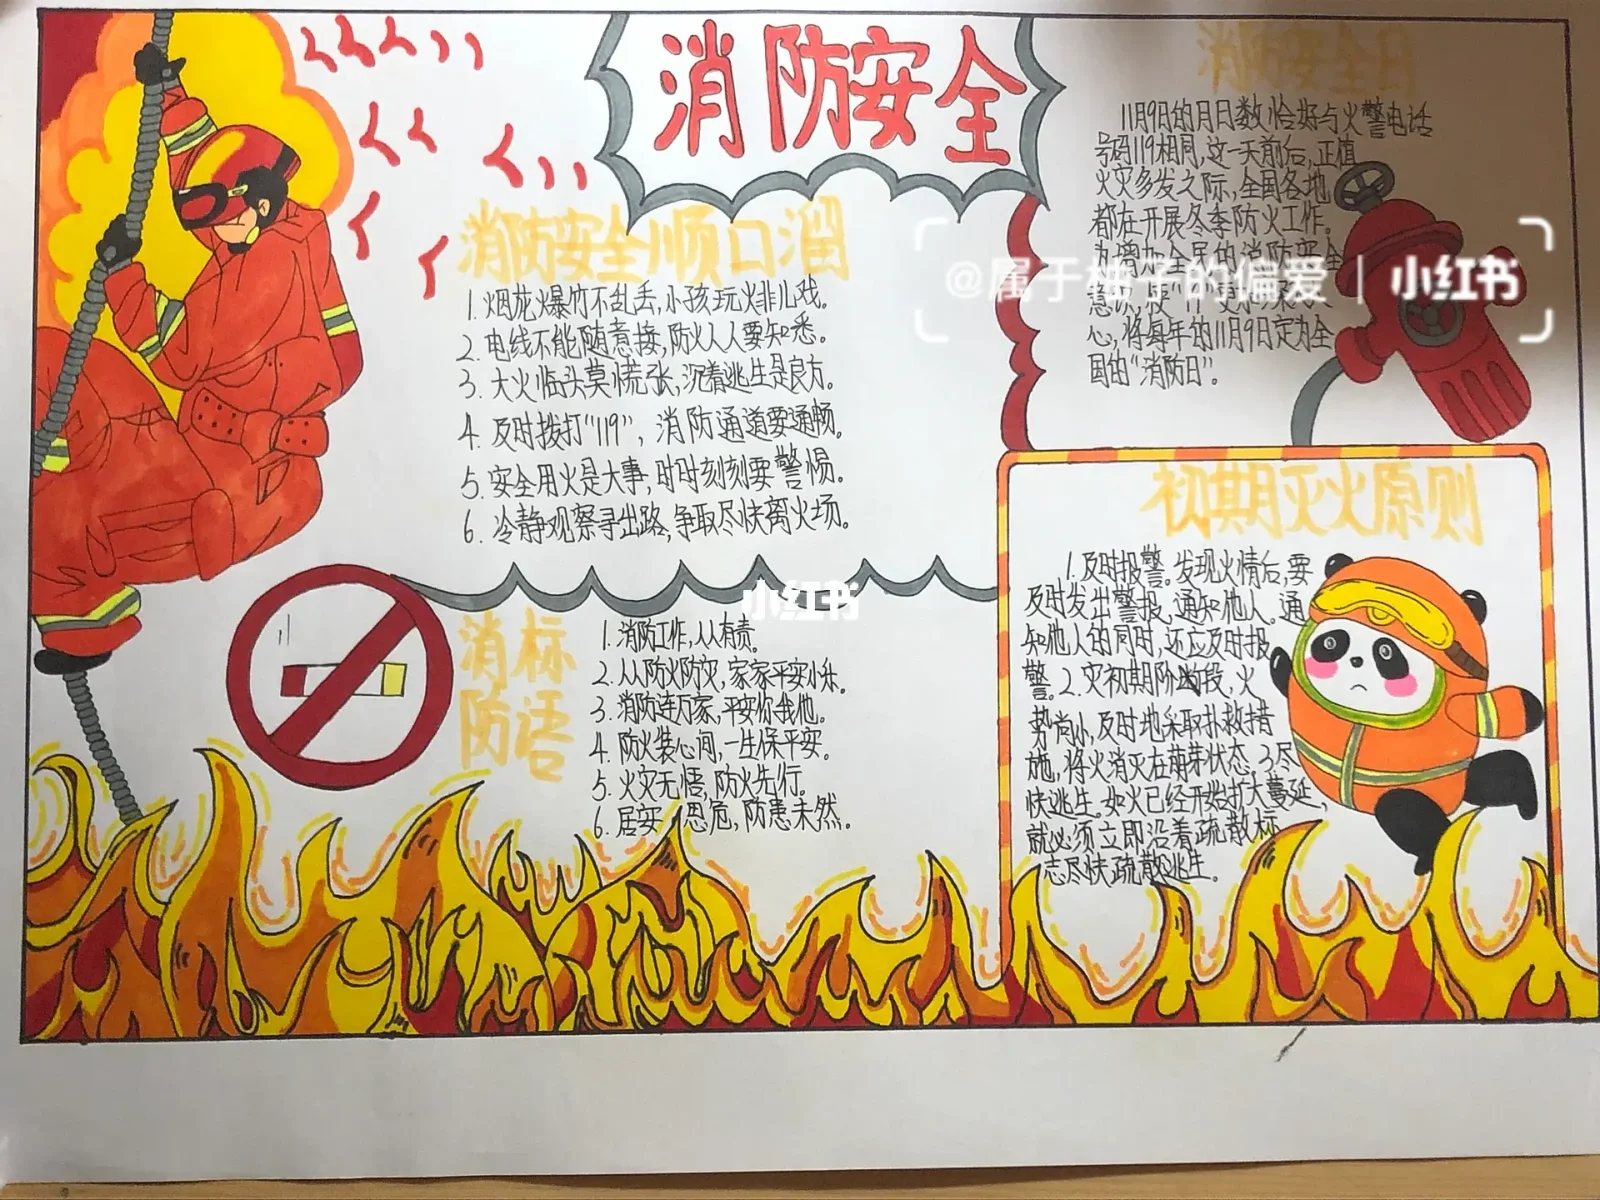 消防安全
消防安全顺口溜
1. 烟花火爆竹不乱丢,小孩玩火非儿戏。
2. 电线不能随意接,防火人人要知悉。
3. 大火临头莫慌张,沉着逃生是良方。
4. 及时拨打“119”,消防通道要通畅。
5. 安全用火是大事,时时刻刻要警惕。
6. 冷静观察寻出路,争取尽快离火场。
消防安全日
11月9日的月日数恰好与火警电话
号码119相同,这一天前后,正值
火灾多发之际,全国各地
都在开展冬季防火工作。
为增加全民的消防安全
心,将每年的11月9日定为全
国的“消防日”。
@属于柚子的偏爱 | 小红书
小红书
消防
标语
1. 消防工作,人人有责。
2. 人人防火防灾,家家平安小乐。
3. 消防连万家,平安你我他。
4. 防火装心间,一生保平安。
5. 火灾无悟,防火先行。
6. 居安思危,防患未然。
初期灭火原则
1. 及时报警。发现火情后,要
及时发出警报,通知他人。通
知他人的同时,还应及时报
警。2. 灾初期阶段,火
势尚小,及时地采取扑救措
施,将火消灭在萌芽状态。3尽
快逃生。如火已经开始扩大蔓延,
就必须立即沿着疏散标
志尽快疏散逃生。